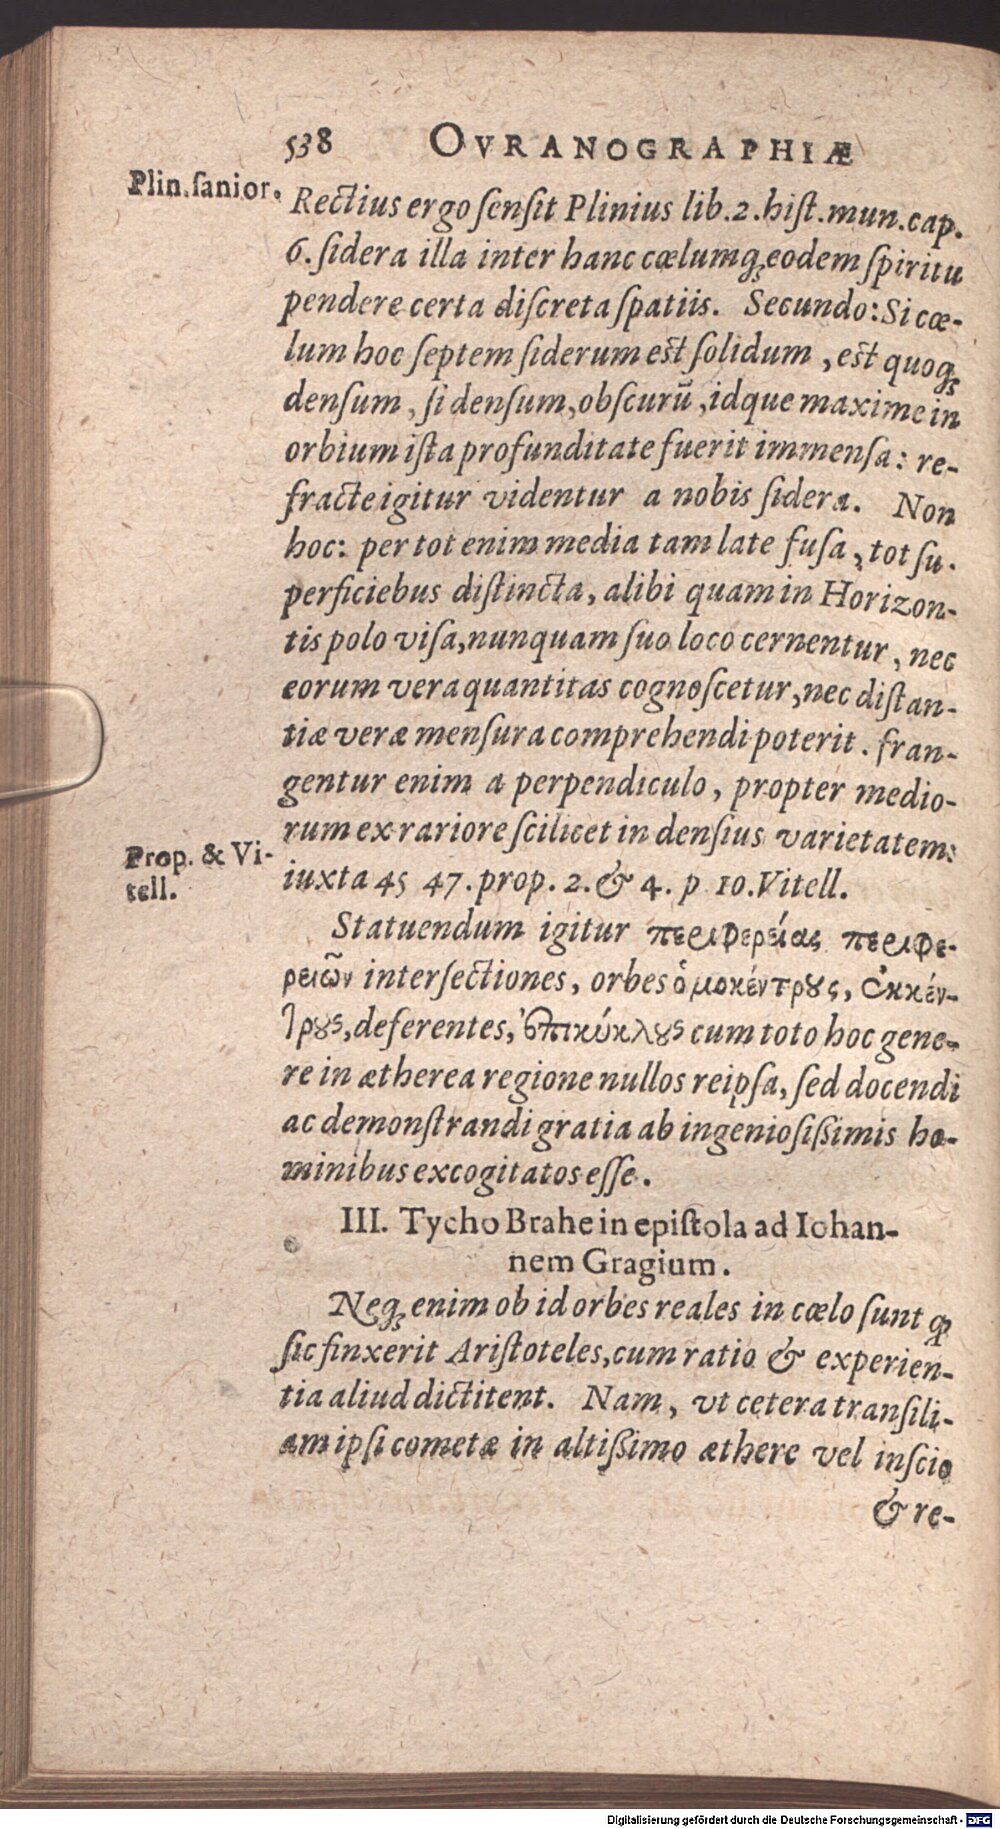 538 OVRANOGRAPHIÆ
Plin. ſanior.
Rectius ergo ſenſit Plinius lib. 2. hiſt. mun. cap.
6. ſidera illa inter hanc cœlumq; eodem ſpiritu
pendere certa diſcreta ſpatiis. Secundo: Si cœ-
lum hoc ſeptem ſiderum eſt ſolidum, eſt quoq;
denſum, ſi denſum, obſcurũ, idque maxime in
orbium iſta profunditate fuerit immenſa: re-
fracte igitur videntur a nobis ſidera. Non
hoc: per tot enim media tam late fuſa, tot ſu-
perficiebus diſtincta, alibi quam in Horizon-
tis polo viſa, nunquam ſuo loco cernentur, nec
eorum vera quantitas cognoſcetur, nec diſtan-
tiæ veræ menſura comprehendi poterit. fran-
gentur enim a perpendiculo, propter medio-
rum ex rariore ſcilicet in denſius varietatem:
Prop. & Vi-
tell.
iuxta 45 47. prop. 2. & 4. p 10. Vitell.
Statuendum igitur περιφερείας περιφε-
ρειῶν interſectiones, orbes ὁμοκέντρους, ἐκκέν-
τρους, deferentes, ἐπικύκλους cum toto hoc gene-
re in ætherea regione nullos reipſa, ſed docendi
ac demonſtrandi gratia ab ingenioſiſsimis ho-
minibus excogitatos eſſe.
III. Tycho Brahe in epiſtola ad Iohan-
nem Gragium.
Neq; enim ob id orbes reales in cœlo ſunt ꝙ
ſic finxerit Ariſtoteles, cum ratio & experien-
tia aliud dictitent. Nam, vt cetera tranſili-
am ipſi cometæ in altiſsimo æthere vel inſcio
& re-
Digitalisierung gefördert durch die Deutsche Forschungsgemeinschaft - DFG